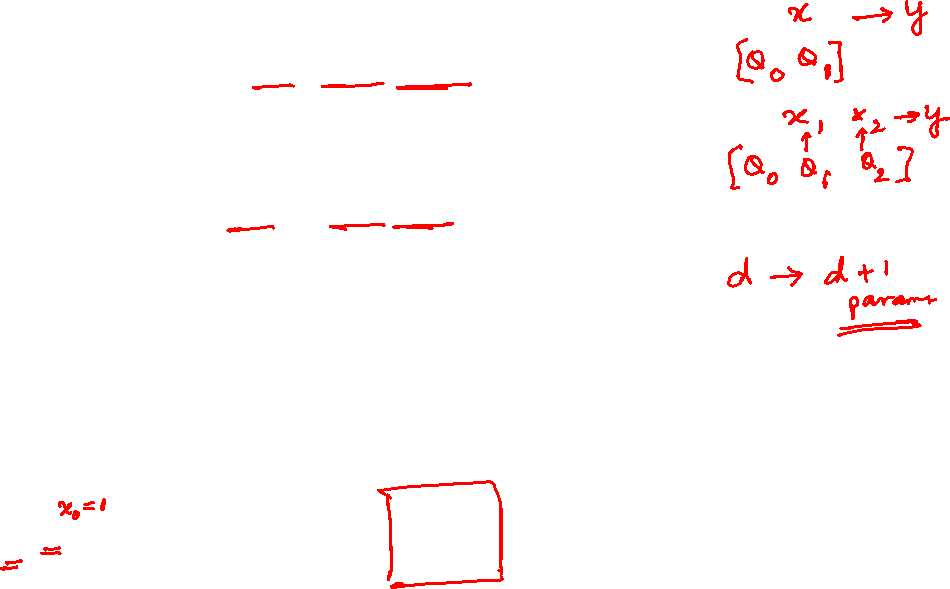 x → y
[θ₀ θ₁]
x₁ x₂ → y
[θ₀ θ₁ θ₂]
d → d+1
param
x₀=1